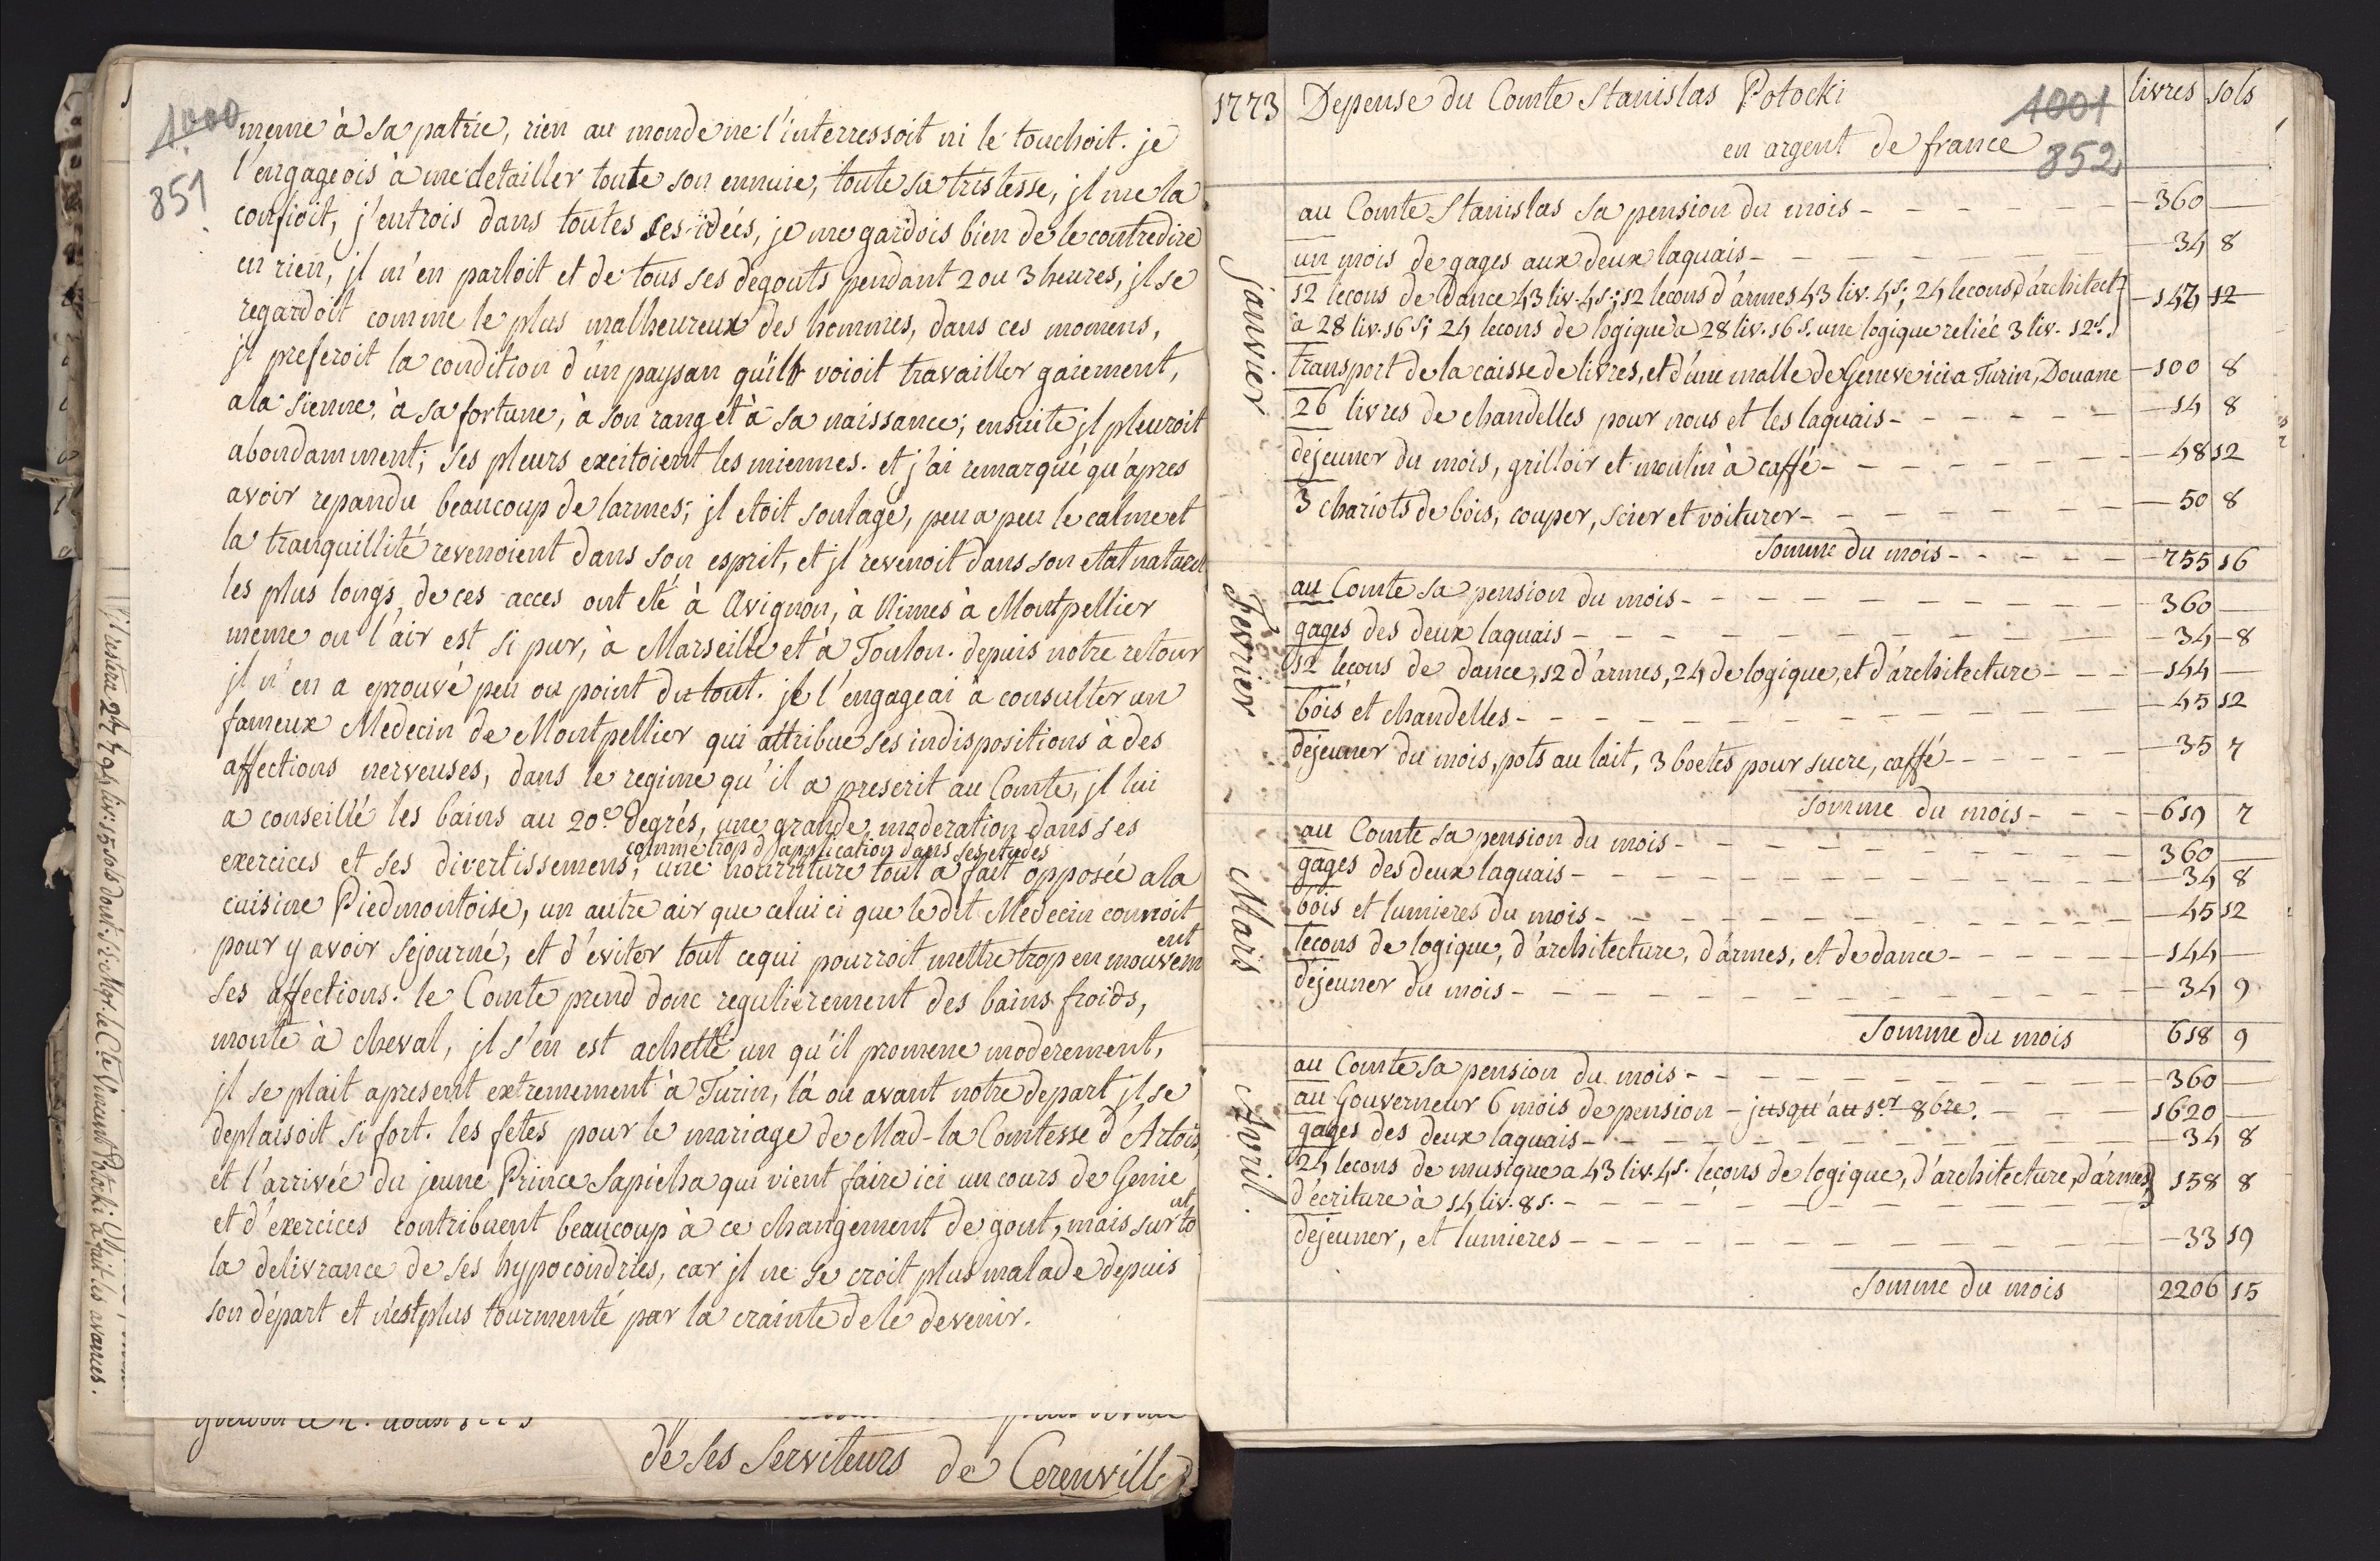 1000
851
meme à sa patrie, rien au monde ne l'interressoit ni le touchoit. je
l'engageois à me detailler toute son ennuie, toute sa tristesse, jl me la
confioit, j'entrois dans toutes ses idées, je me gardois bien de le contredire
en rien, jl m'en parloit et de tous ses degouts pendant 2 ou 3 heures, jl se
regardoit comme le plus malheureux des hommes, dans ces momens,
jl preferoit la condition d'un paysan qu'il voioit travailler gaiement,
a la sienne, à sa fortune, à son rang et à sa naissance; ensuite jl pleuroit
abondamment; ses pleurs excitoient les miennes. et j'ai remarqué qu'apres
avoir repandu beaucoup de larmes; jl etoit soulagé, peu a peu le calme et
la tranquillité revenoient dans son esprit, et jl revenoit dans son etat naturel
les plus longs de ces acces ont eté à Avignon, à Nimes à Montpellier
meme ou l'air est si pur, à Marseille et à Toulon. depuis notre retour
jl n'en a eprouvé peu ou point du tout. je l'engageai à consulter un
fameux Medecin de Montpellier qui attribue ses indispositions à des
affections nerveuses, dans le regime qu'il a prescrit au Comte, jl lui
a conseillé les bains au 20.e degrés, une grande moderation dans ses
comme trop d'application dans ses etudes
exercices et ses divertissemens, une nourriture tout a fait opposée a la
cuisine Piedmontoise, un autre air que celui ci que le dit Medecin connoit
pour y avoir sejourné, et d'eviter tout ce qui pourroit mettre trop en mouvement
ses affections. le Comte prend donc regulierement des bains froids,
monte à cheval, jl s'en est achetté un qu'il promene moderement,
jl se plait apresent extremement à Turin, là ou avant notre depart jl se
deplaisoit si fort. les fetes pour le mariage de Mad-la Comtesse d'Artois,
et l'arrivée du jeune Prince Sapieha qui vient faire ici un cours de Genie
et d'exercices contribuent beaucoup à ce changement de gout, mais sur tout
la delivrance de ses hypocondries, car jl ne se croit plus malade depuis
son départ et n'est plus tourmenté par la crainte de le devenir.
de ses Serviteurs de Cerenville
1773 Depense du Comte Stanislas Potocki 1001 livres sols
en argent de france 852
janvier
au Comte Stanislas sa pension du mois - 360
un mois de gages aux deux laquais - 34 8
12 lecons de dance 43 liv. 4 s; 12 lecons d'armes 43 liv. 4 s; 24 lecons d'architect. - 147 12
a 28 liv. 16 s; 24 lecons de logique a 28 liv. 16 s. une logique reliée 3 liv. 12 s.
transport de la caisse de livres, et d'une malle de Geneve ici a Turin, Douane - 100 8
26 livres de chandelles pour nous et les laquais - 14 8
dejeuner du mois, grilloir et moulin à caffé - 48 12
3 chariots de bois, couper, scier et voiturer - 50 8
Somme du mois - 755 16
Fevrier
au Comte sa pension du mois - 360
gages des deux laquais - 34 - 8
12 lecons de dance, 12 d'armes, 24 de logique, et d'architecture - 144
bois et chandelles - 45 12
dejeuner du mois, pots au lait, 3 boetes pour sucre, caffé - 35 7
Somme du mois - 619 7
Mars
au Comte sa pension du mois - 360
gages des deux laquais - 34 8
bois et lumieres du mois - 45 12
lecons de logique, d'architecture, d'armes, et de dance - 144
dejeuner du mois - 34 9
Somme du mois 618 9
Avril.
au Comte sa pension du mois - 360
au Gouverneur 6 mois de pension - jusqu'au 1.er 8bre. - 1620
gages des deux laquais - 34 8
24 lecons de musique a 43 liv. 4 s. lecons de logique, d'architecture, d'armes, 158 8
d'ecriture à 14 liv. 8 s.
dejeuner, et lumieres - 33 19
Somme du mois 2206 15